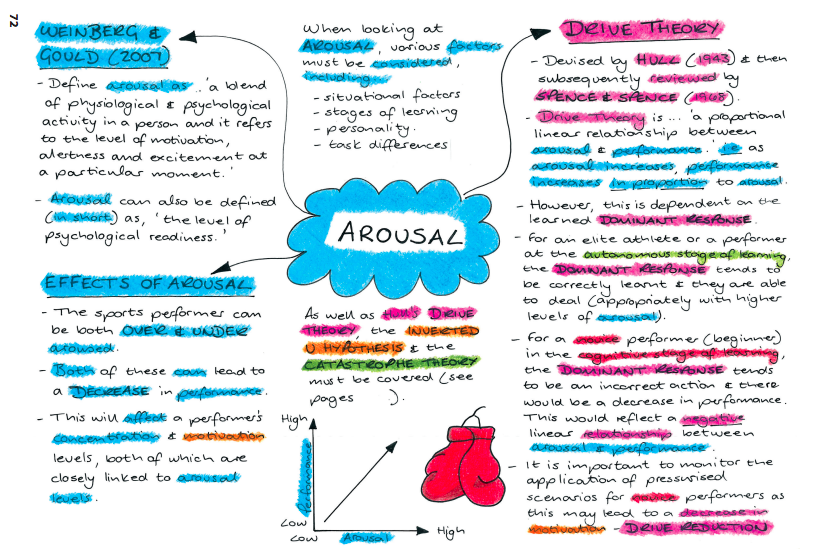 72
WEINBERG &
GOULD (2007)
- Define arousal as.. 'a blend
of physiological & psychological
activity in a person and it refers
to the level of motivation,
alertness and excitement at
a particular moment.'
- Arousal can also be defined
(in short) as, 'the level of
psychological readiness.'
EFFECTS OF AROUSAL
- The sports performer can
be both OVER & UNDER
aroused.
- Both of these can lead to
a DECREASE in performance.
- This will affect a performer's
concentration & motivation
levels, both of which are
closely linked to arousal
levels.
When looking at
AROUSAL, various factors
must be considered,
including..
- situational factors
- stages of learning
- personality.
- task differences
AROUSAL
As well as Hull's DRIVE
THEORY, the INVERTED
U HYPOTHESIS & the
CATASTROPHE THEORY
must be covered (see
pages ).
High
Performance
Low
Low
Arousal
High
DRIVE THEORY
- Devised by HULL (1943) & then
subsequently reviewed by
SPENCE & SPENCE (1968).
- Drive Theory is ... 'a proportional
linear relationship between
arousal & performance.' ie as
arousal increases, performance
increases in proportion to arousal.
- However, this is dependent on the
learned DOMINANT RESPONSE.
- For an elite athlete or a performer
at the autonomous stage of learning,
the DOMINANT RESPONSE tends to
be correctly learnt & they are able
to deal (appropriately with higher
levels of arousal).
- For a novice performer (beginner)
in the cognitive stage of learning,
the DOMINANT RESPONSE tends
to be an incorrect action & there
would be a decrease in performance.
This would reflect a negative
linear relationship between
arousal & performance.
- It is important to monitor the
application of pressurised
scenarios for novice performers as
this may lead to a decrease in
motivation - DRIVE REDUCTION